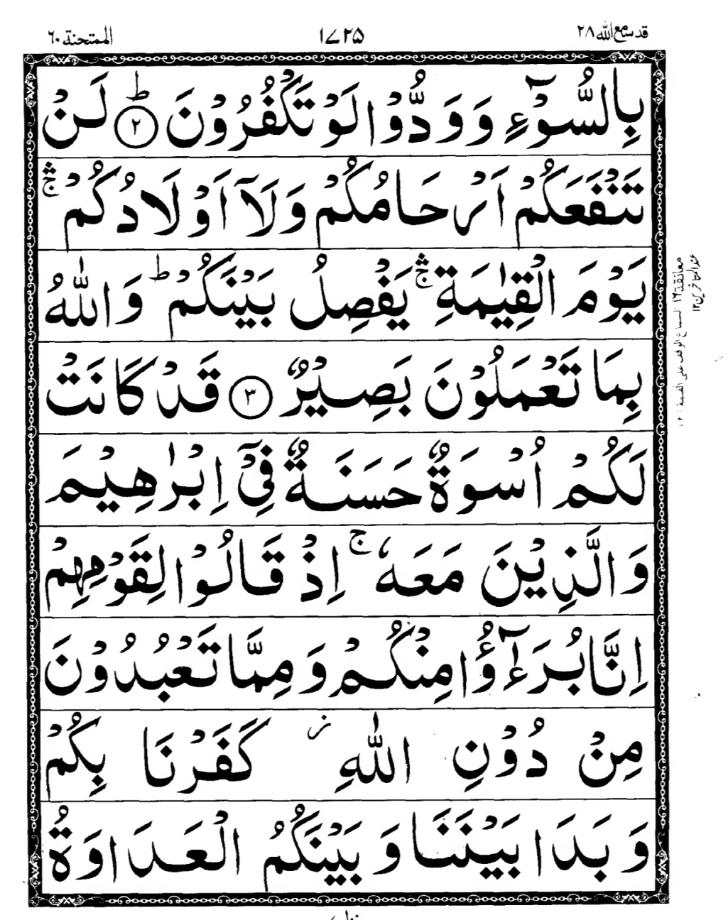 قد سمع الله ٢٨ ١٧٢٥ الممتحنة ٦٠
بِالسُّوْٓءِ وَوَدُّوْا لَوْ تَكْفُرُوْنَ ؕ﴿۲﴾ لَنْ
تَنْفَعَكُمْ اَرْحَامُكُمْ وَلَاۤ اَوْلَادُكُمْ ۛۚ
يَوْمَ الْقِيٰمَةِ ۛۚ يَفْصِلُ بَيْنَكُمْ ؕ وَاللّٰهُ
بِمَا تَعْمَلُوْنَ بَصِيْرٌ ﴿۳﴾ قَدْ كَانَتْ
لَكُمْ اُسْوَةٌ حَسَنَةٌ فِيْۤ اِبْرٰهِيْمَ
وَالَّذِيْنَ مَعَهٗ ۚ اِذْ قَالُوْا لِقَوْمِهِمْ
اِنَّا بُرَءٰٓؤُا مِنْكُمْ وَمِمَّا تَعْبُدُوْنَ
مِنْ دُوْنِ اللّٰهِ ؗ كَفَرْنَا بِكُمْ
وَبَدَا بَيْنَنَا وَبَيْنَكُمُ الْعَدَاوَةُ